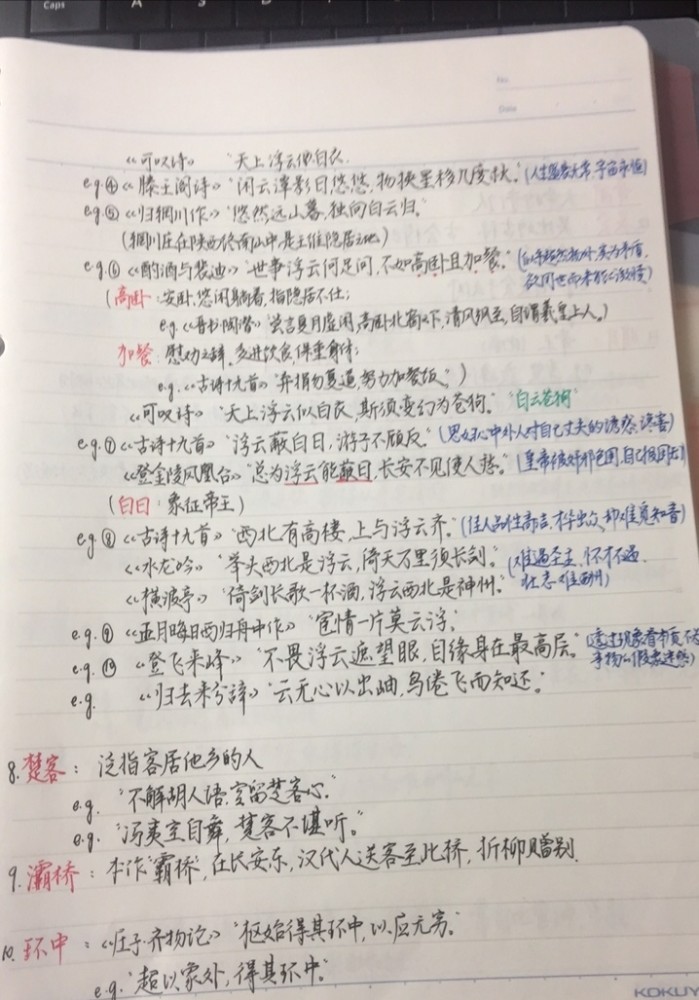 Caps
A
S
D
No.
Date
《可叹诗》 "天上浮云似白衣.
e.g.④《滕王阁诗》"闲云潭影日悠悠,物换星移几度秋."(人生盛衰无常,宇宙永恒)
e.g.⑤《归辋川作》"悠然远山暮,独向白云归."
(辋川庄在陕西终南山中,是王维隐居之地)
e.g.⑥《酌酒与裴迪》"世事浮云何足问,不如高卧且加餐."
(高卧:安卧,悠闲躺着,指隐居不仕;
e.g.《晋书·陶潜》"尝言夏月虚闲,高卧北窗下,清风飒至,自谓羲皇上人.)
加餐:慰劝之辞,多进饮食,保重身体;
e.g.《古诗十九首》"弃捐勿复道,努力加餐饭.")
《可叹诗》"天上浮云似白衣,斯须变幻为苍狗." "白云苍狗"
e.g.⑦《古诗十九首》"浮云蔽白日,游子不顾反."(思妇心中外人对自己丈夫的诱惑、)
《登金陵凤凰台》"总为浮云能蔽日,长安不见使人愁."(皇帝被奸邪包围,自己报国)
(白日:象征帝王)
e.g.⑧《古诗十九首》"西北有高楼,上与浮云齐."(佳人品性高洁,才华出众,却难觅知音)
《水龙吟》"举头西北是浮云,倚天万里须长剑."(难遇圣主,怀才不遇,
《横波亭》"倚剑长歌一杯酒,浮云西北是神州." 壮志难酬)
e.g.⑨《正月晦日西归舟中作》"宦情一片莫云浮."
e.g.⑩《登飞来峰》"不畏浮云遮望眼,自缘身在最高层."(透过现象看本质,不
e.g. 《归去来兮辞》"云无心以出岫,鸟倦飞而知还." 事物的假象迷惑)
8.楚客:泛指客居他乡的人
e.g. "不解胡人语,空留楚客心."
e.g. "冯夷空自舞,楚客不堪听."
9.灞桥:本作"霸桥",在长安东,汉代人送客至此桥,折柳赠别.
10.环中:《庄子·齐物论》"枢始得其环中,以应无穷."
e.g."超以象外,得其环中."
KOKUY